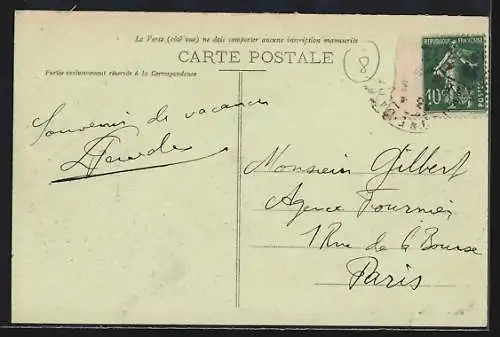 Le Verso (côté vue) ne doit comporter aucune inscription manuscrite
CARTE POSTALE
Partie exclusivement réservée à la Correspondance
8
REPUBLIQUE FRANÇAISE
10
POSTES
Souvenir de vacances
Monsieur Gilbert
Agence Fournier
1 Rue de la Bourse
Paris